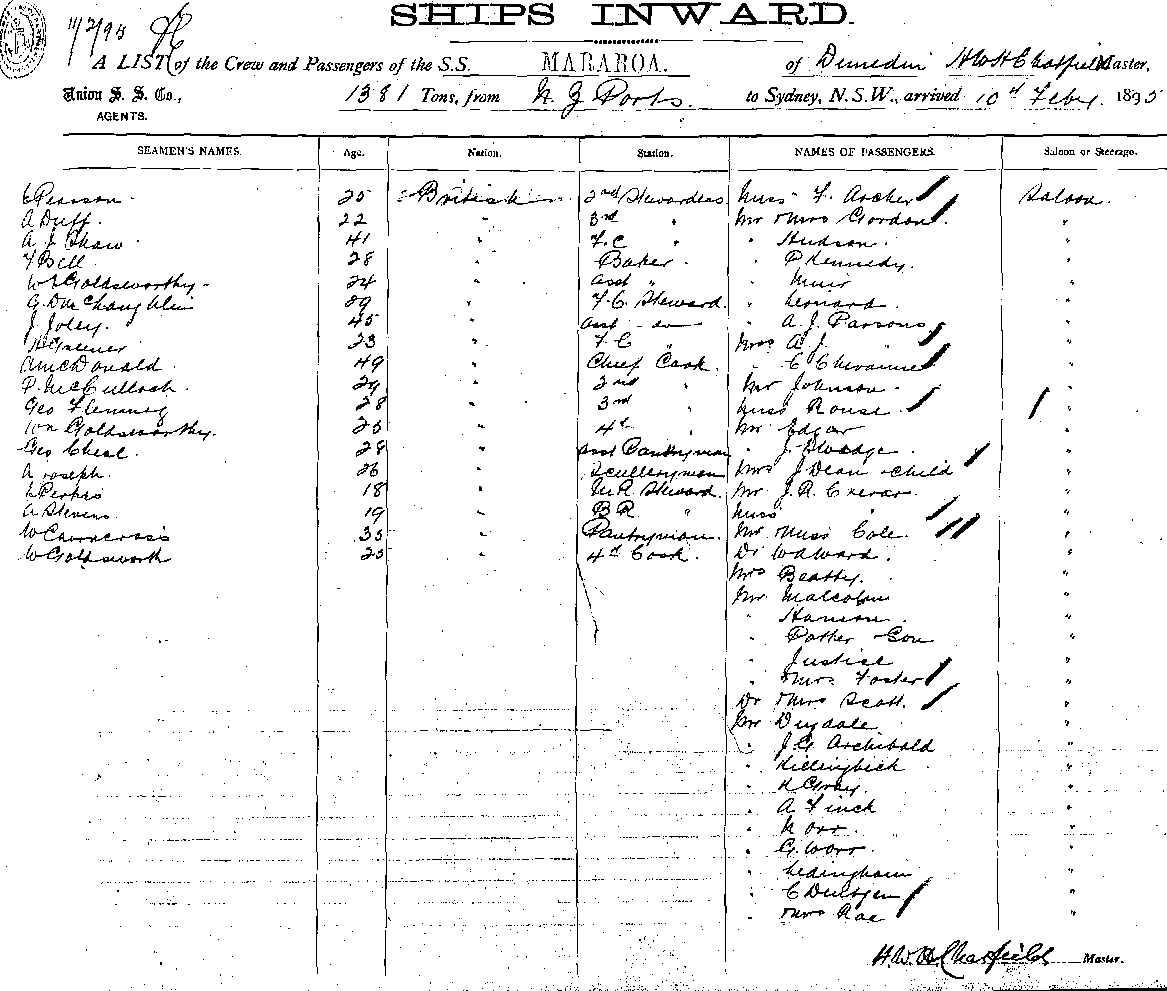 SHIPS INWARD.
11/2/95
A LIST of the Crew and Passengers of the S.S. MARAROA. of Dunedin H W H Chatfield Master,
Union S. S. Co., 1381 Tons, from N Z Ports. to Sydney, N.S.W., arrived 10th Feby. 1895
AGENTS.
SEAMEN'S NAMES. Age. Nation. Station. NAMES OF PASSENGERS. Saloon or Steerage.
Pearson 25 British 2nd Stewardess Miss F. Archer Saloon
A Duff 22 " 3rd " Mr & Mrs Gordon "
A J Shaw 41 " F.C " " Hudson "
F Bell 28 " Baker " P Kennedy "
W Goldsworthy 24 " asst " " Muir "
G. D McLaughlin 39 " F.C. Steward " Leonard "
J Joley 45 " asst do " A. J. Parsons "
23 " F C " Mrs A J "
A McDonald 49 " Chief Cook " C "
P. McCulloch 29 " 2nd " Mr Johnson "
Geo Fleming 28 " 3rd " Miss Rouse "
Goldsworthy 25 " 4th " Mr Edgar "
Geo Cheal 28 " asst Pantryman " J. "
A Joseph 26 " Scullery man Mrs J Dean & child "
18 " M.R. Steward Mr J. R. "
A Stevens 19 " B R " Miss "
W Cairncross 35 " Pantryman Mr & Miss Cole "
W Goldsworth 25 " 4th Cook Dr Waward "
Mrs Beatty "
Mr Malcolm "
" Hanson "
" & Son "
" Justice "
" & Mrs Foster "
Dr & Mrs Scott "
Mr Dugdale "
" J. G. Archibald "
" Killingbeck "
" Gray "
" A Finch "
" Orr "
" G W Orr "
" Ledingham "
" C "
" & Mrs Rae "
H. W. H Chatfield Master.